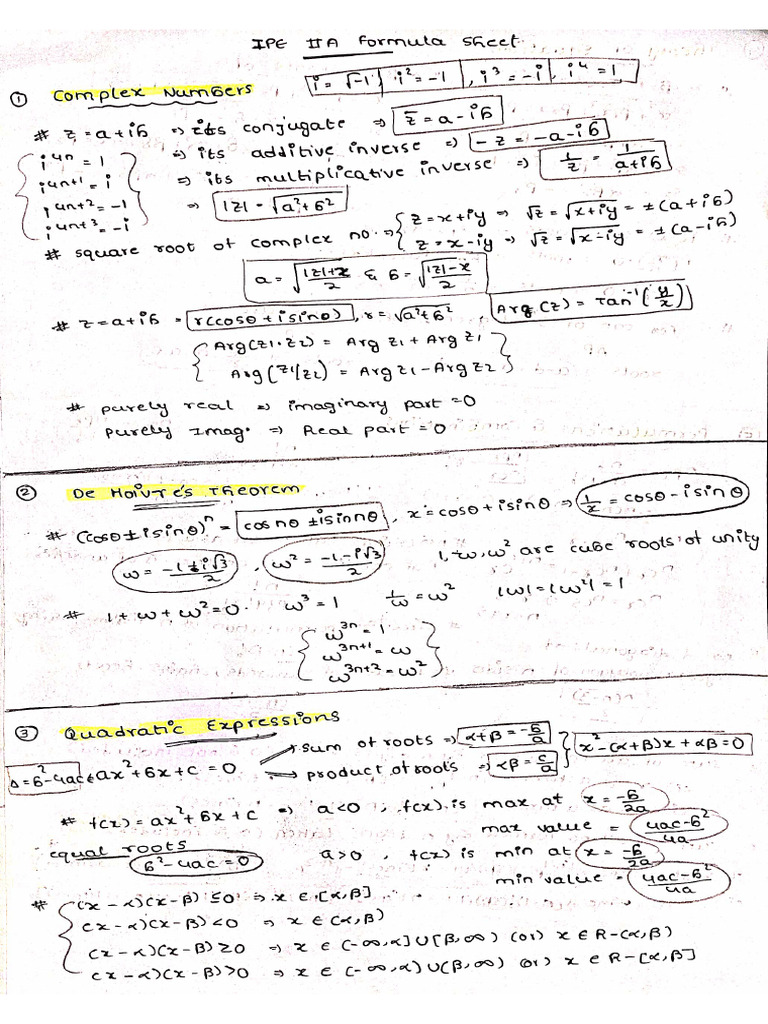 IPE IIA Formula Sheet
① Complex Numbers i = √-1, i² = -1, i³ = -i, i⁴ = 1
# z = a+ib ⇒ its conjugate ⇒ z̄ = a-ib
⇒ its additive inverse ⇒ -z = -a-ib
⇒ its multiplicative inverse ⇒ 1/z = 1/(a+ib)
⇒ |z| = √(a²+b²)
i⁴ⁿ = 1
i⁴ⁿ⁺¹ = i
i⁴ⁿ⁺² = -1
i⁴ⁿ⁺³ = -i
# square root of complex no. ⇒ { z = x+iy ⇒ √z = √(x+iy) = ±(a+ib)
z = x-iy ⇒ √z = √(x-iy) = ±(a-ib)
a = √((|z|+x)/2) & b = √((|z|-x)/2)
# z = a+ib = r(cosθ+isinθ), r = √(a²+b²) Arg(z) = Tan⁻¹(y/x)
Arg(z1·z2) = Arg z1 + Arg z1
Arg(z1/z2) = Arg z1 - Arg z2
# purely real ⇒ imaginary part = 0
purely Imag. ⇒ Real part = 0
② De Moivre's Theorem
# (cosθ±isinθ)ⁿ = cos nθ ± isin nθ, x = cosθ+isinθ ⇒ 1/x = cosθ-isinθ
ω = (-1+i√3)/2, ω² = (-1-i√3)/2 1, ω, ω² are cube roots of unity
# 1+ω+ω² = 0. ω³ = 1 1/ω = ω² |ω| = |ω²| = 1
ω³ⁿ = 1
ω³ⁿ⁺¹ = ω
ω³ⁿ⁺² = ω²
③ Quadratic Expressions
sum of roots ⇒ α+β = -b/a } x²-(α+β)x+αβ = 0
Δ = b²-4ac ax²+bx+c = 0
product of roots ⇒ αβ = c/a
# f(x) = ax²+bx+c ⇒ a<0, f(x) is max at x = -b/2a
max value = (4ac-b²)/4a
equal roots
b²-4ac = 0 a>0, f(x) is min at x = -b/2a
min value = (4ac-b²)/4a
# (x-α)(x-β) ≤ 0 ⇒ x ∈ [α,β]
(x-α)(x-β) < 0 ⇒ x ∈ (α,β)
(x-α)(x-β) ≥ 0 ⇒ x ∈ (-∞,α]∪[β,∞) (or) x ∈ R-(α,β)
(x-α)(x-β) > 0 ⇒ x ∈ (-∞,α)∪(β,∞) (or) x ∈ R-[α,β]